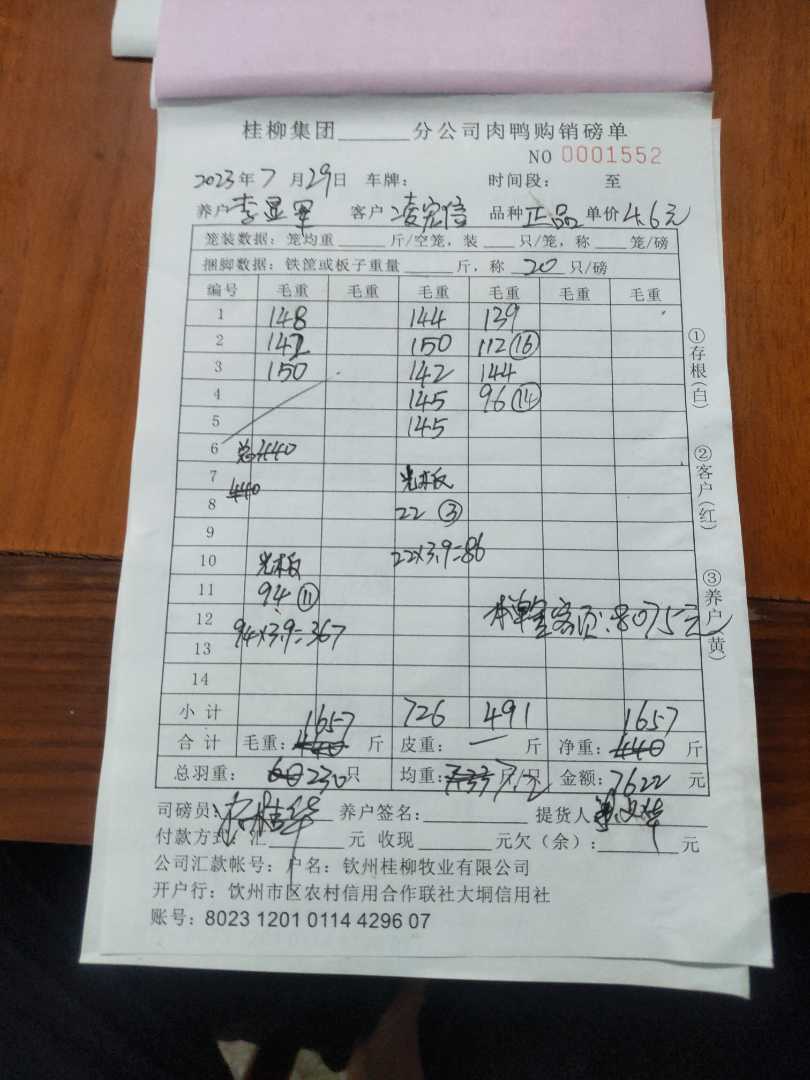 桂柳集团______分公司肉鸭购销磅单
NO 0001552
2023年7月29日 车牌: 时间段: 至
养户李显军 客户凌宏信 品种正品 单价4.6元
笼装数据: 笼均重____斤/空笼, 装___只/笼, 称___笼/磅
捆脚数据: 铁筐或板子重量____斤, 称 20 只/磅
编号 毛重 毛重 毛重 毛重 毛重 毛重
1 148 144 139
2 142 150 112 ⑯
3 150 142 144
4 145 96 ⑭
5 145
6 总440
7 440 光板
8 22 ③
9
10 光板 22×3.9=86
11 94 ⑪
12 本单金额:8075元
13 94×3.9=367
14
小计 726 491
合计 毛重: 440 1657 斤 皮重: — 斤 净重: 440 1657 斤
总羽重: 60 230只 均重: 7.33 7.2/只 金额: 7622 元
司磅员: 养户签名: 提货人
付款方式: 汇____元 收现____元欠(余):____元
公司汇款帐号: 户名: 钦州桂柳牧业有限公司
开户行: 饮州市区农村信用合作联社大垌信用社
账号: 8023 1201 0114 4296 07
①存根(白)
②客户(红)
③养户(黄)